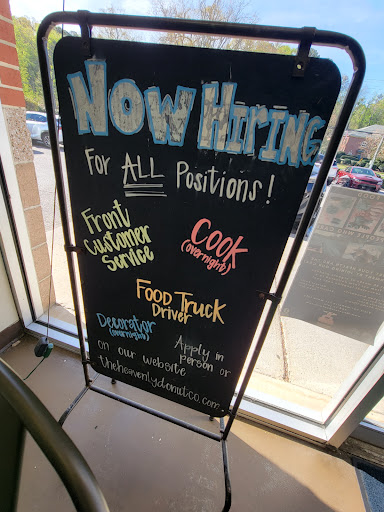 Now Hiring
For ALL Positions!
Front
Customer
Service
Cook
(overnight)
Food Truck
Driver
Decorator
(overnight)
Apply in
person or
on our website
theheavenlydonutco.com